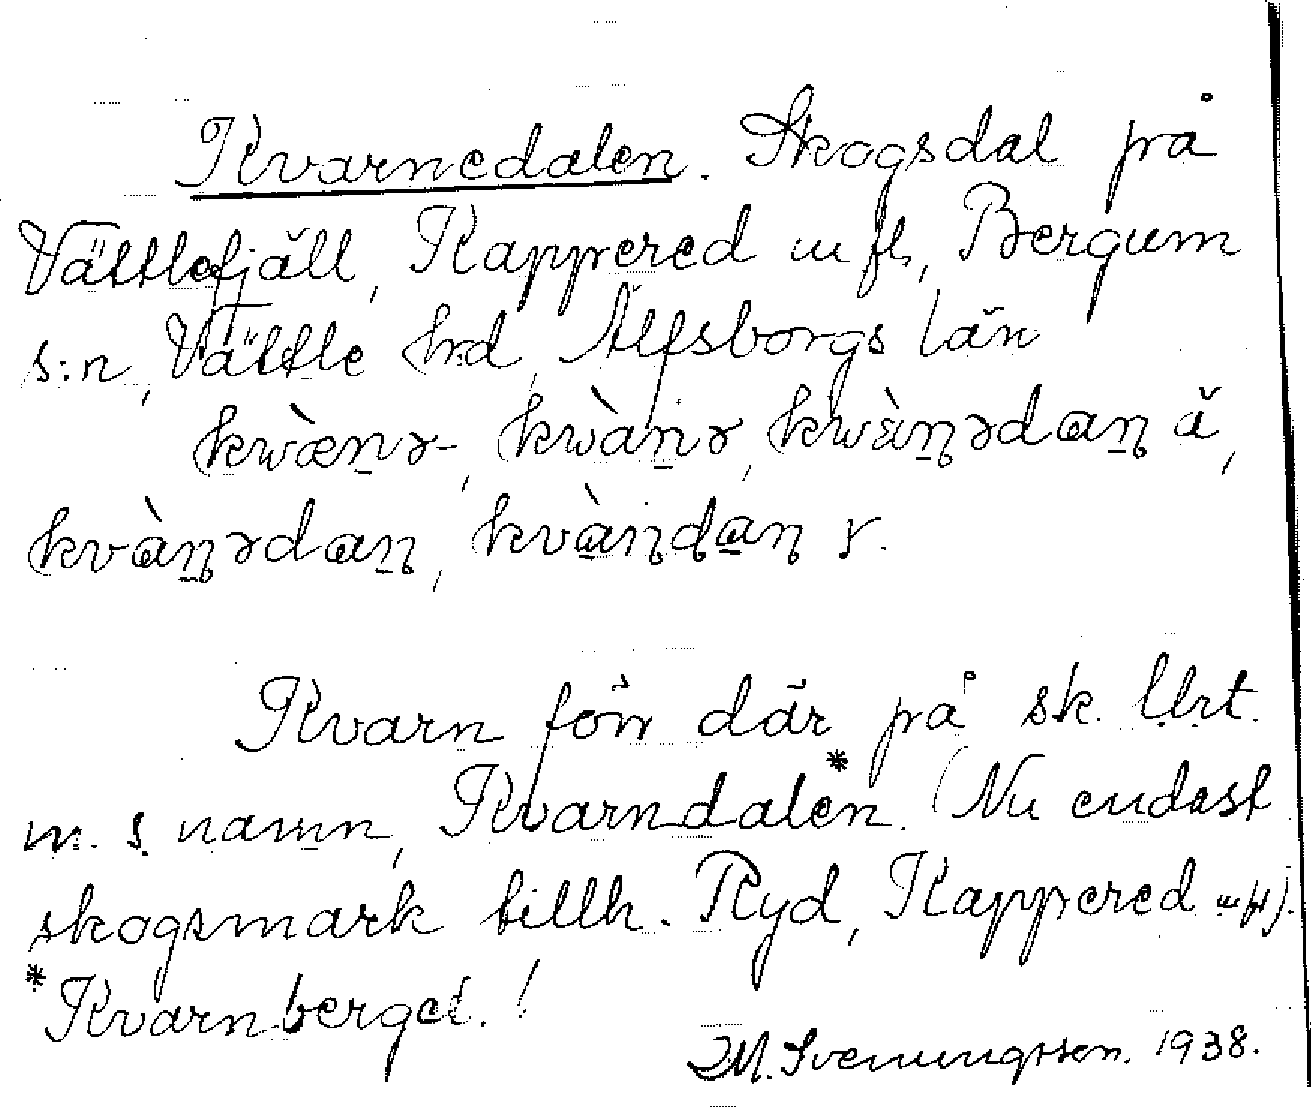 Kvarnedalen. Skogsdal på
Vättlefjäll, Kappered m fl, Bergum
s:n, Vättle hrd, Älfsborgs län
kwæ̀nə-, kwànə, kwàn̥ədan̥ ǎ,
kvàn̥ədan̥, kvàn̥dan̥ r.
Kvarn förr där på sk.
m. s. namn, Kvarndalen.* (Nu endast
skogsmark tillh. Ryd, Kappered m fl).
*Kvarnberget.!
M. Svenungsson. 1938.